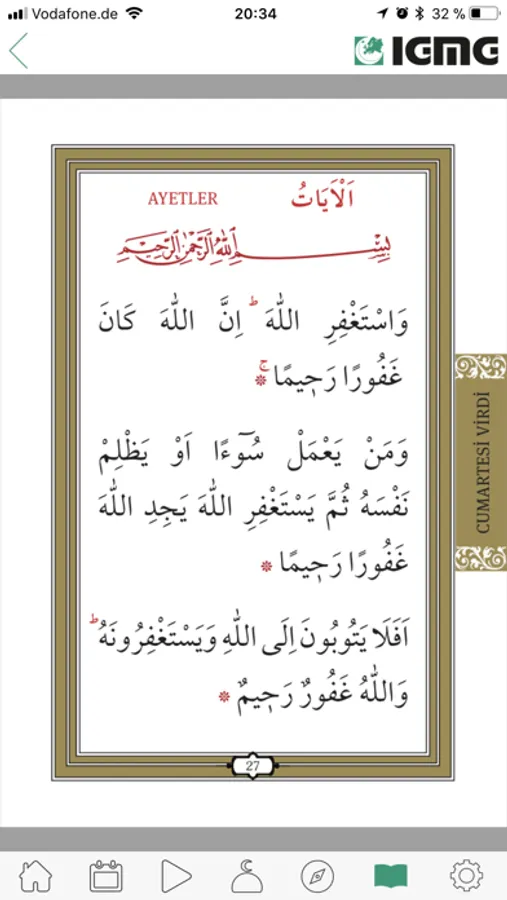 Vodafone.de 20:34 32 %
IGMG
AYETLER اَلْاٰيَاتُ
بِسْمِ اللّٰهِ الرَّحْمٰنِ الرَّحِيمِ
وَاسْتَغْفِرِ اللّٰهَ ۜ اِنَّ اللّٰهَ كَانَ
غَفُورًا رَحِيمًا ۚ
وَمَنْ يَعْمَلْ سُوٓءًا اَوْ يَظْلِمْ
نَفْسَهُ ثُمَّ يَسْتَغْفِرِ اللّٰهَ يَجِدِ اللّٰهَ
غَفُورًا رَحِيمًا
اَفَلَا يَتُوبُونَ اِلَى اللّٰهِ وَيَسْتَغْفِرُونَهُ ۜ
وَاللّٰهُ غَفُورٌ رَحِيمٌ
CUMARTESİ VİRDİ
27